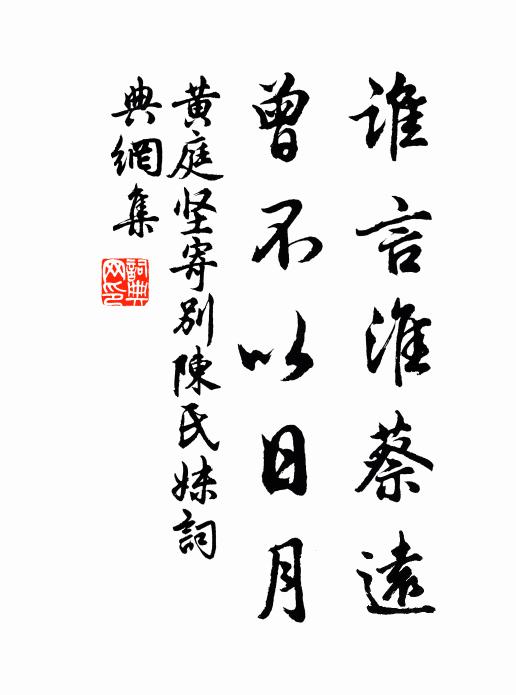 谁言淮蔡遠
曾不以日月
黄庭坚寄别陳氏妹詞
典網集
詞典
网印